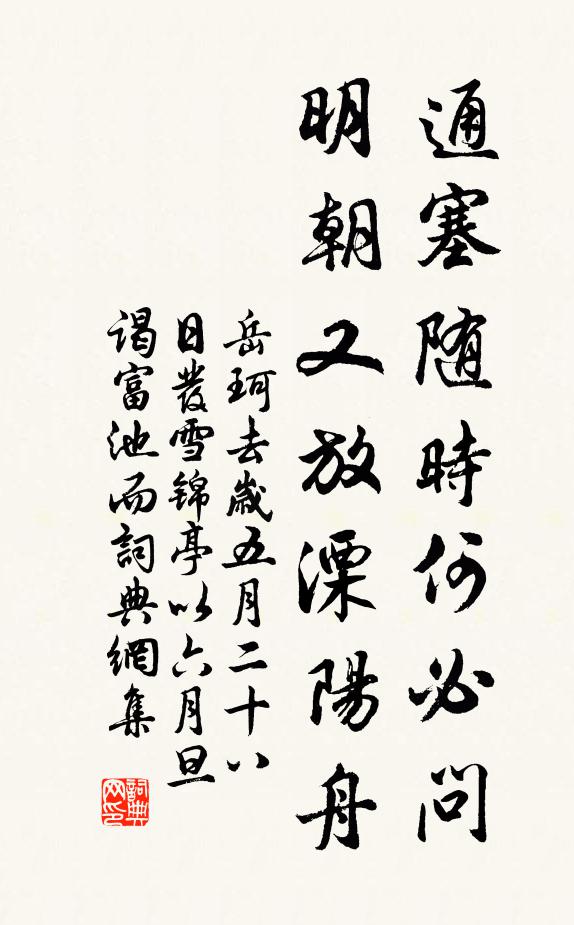 通塞随時何必問
明朝又放溧陽舟
岳珂去歲五月二十八
日發雪錦亭以六月旦
謁富池而詞典網集
詞典網印